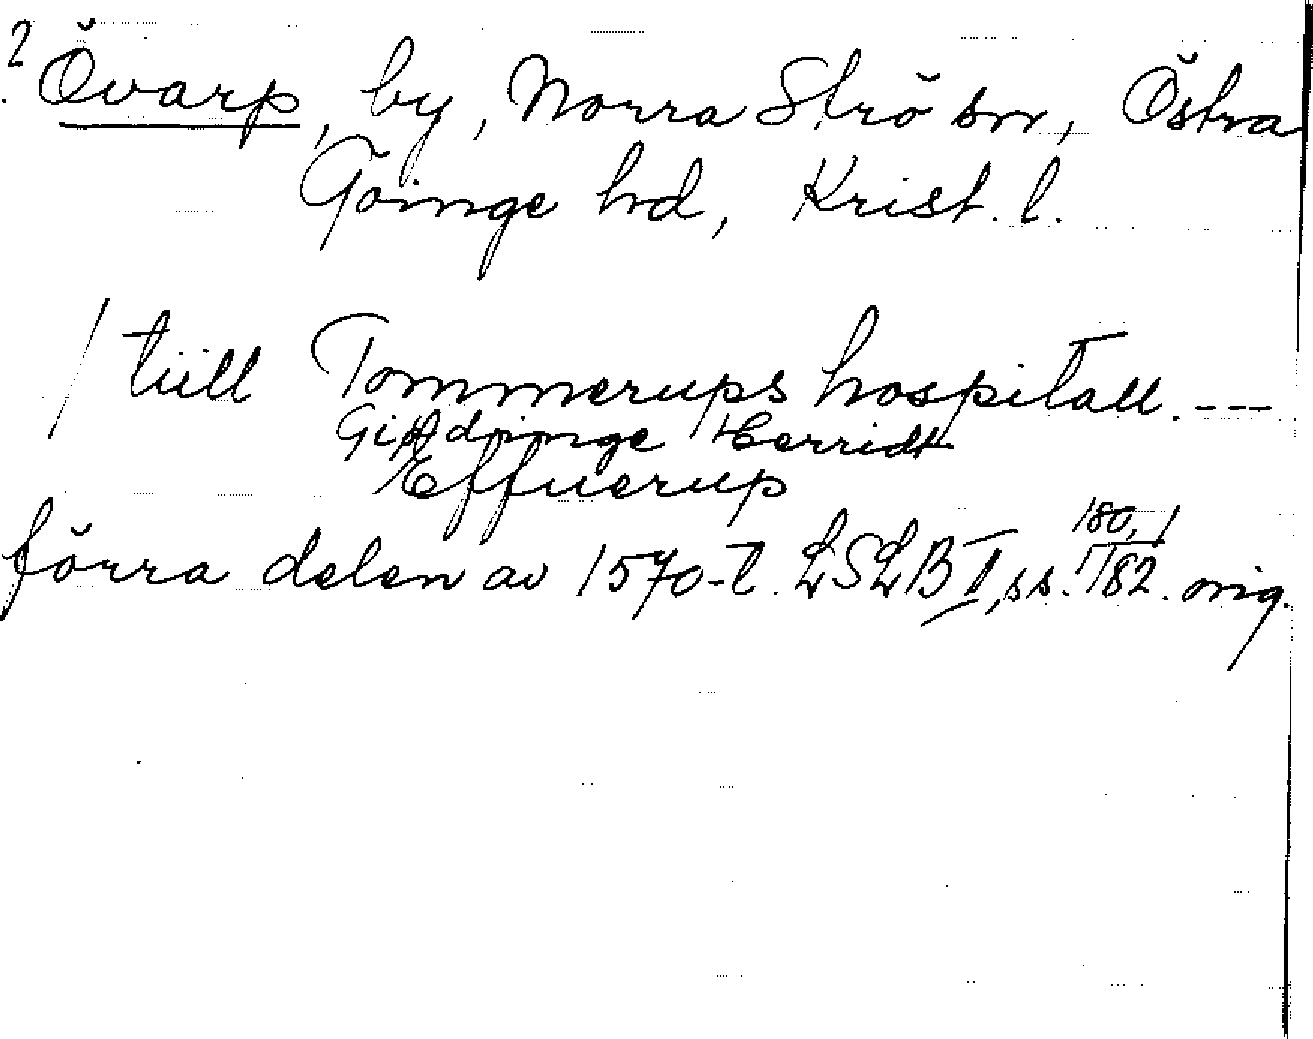 2 Övarp, by, Norra Strö sn, Östra
Göinge hd, Krist. l.
/ tiill Tommerups hospitall. ---
Giødinge Herridt
Effuerup
180, 1
förra delen av 1570-t. LSLB II, ss. 182. orig.